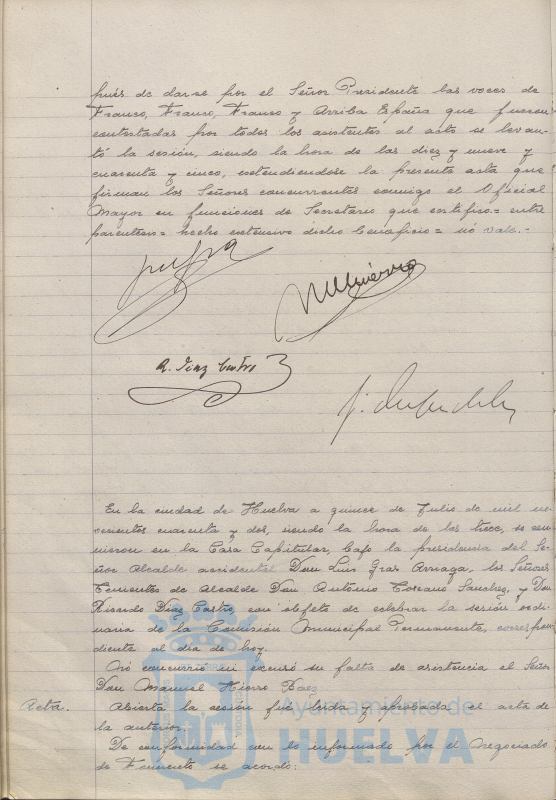 pués de darse por el Señor Presidente las voces de
Franco, Franco, Franco y Arriba España que fueron
contestadas por todos los asistentes al acto se levan-
tó la sesión, siendo la hora de las diez y nueve y
cuarenta y cinco, extendiendose la presente acta que
firman los Señores concurrentes conmigo el Oficial
Mayor en funciones de Secretario que certifico.= entre
parentesis = hecho extensivo dicho beneficio = nó vale.-
R. Diaz Castro
En la ciudad de Huelva a quince de Julio de mil no-
vecientos cuarenta y dos, siendo la hora de las trece, se reu-
nieron en la Casa Capitular, bajo la presidencia del Se-
ñor Alcalde accidental Don Luis Gras Arriaga, los Señores
Tenientes de Alcalde Don Antonio Toscano Sanchez, y Don
Ricardo Diaz Castro, con objeto de celebrar la sesión ordi-
naria de la Comisión Municipal Permanente, correspon-
diente al dia de hoy.
Nó concurrió ni excusó su falta de asistencia el Señor
Don Manuel Hierro Baez
Acta. Abierta la sesión fué leida y aprobada el acta de
la anterior.
De conformidad con lo informado por el Negociado
de Fomento se acordó:
Ayuntamiento de
HUELVA